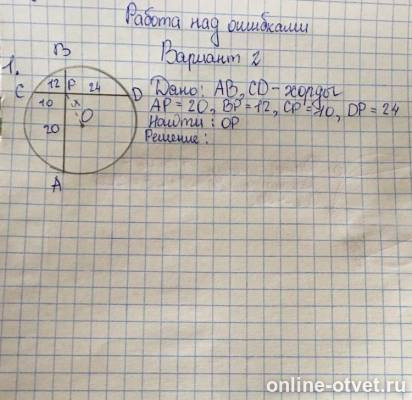 Работа над ошибками
Вариант 2
1.
B
12 P 24
C
D
10 x
O
20
A
Дано: AB, CD - хорды
AP = 20, BP = 12, CP = 10, DP = 24
Найти: OP
Решение:
online-otvet.ru